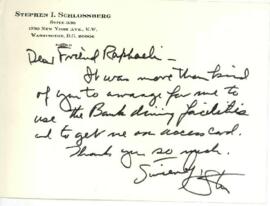 STEPHEN I. SCHLOSSBERG
SUITE 530
1730 NEW YORK AVE., N.W.
WASHINGTON, D.C. 20006
Dear Friend Raphael -
It was more than kind
of you to arrange for me to
use the Bank dining facilities
and to get me an access card.
Thank you so much.
Sincerely,